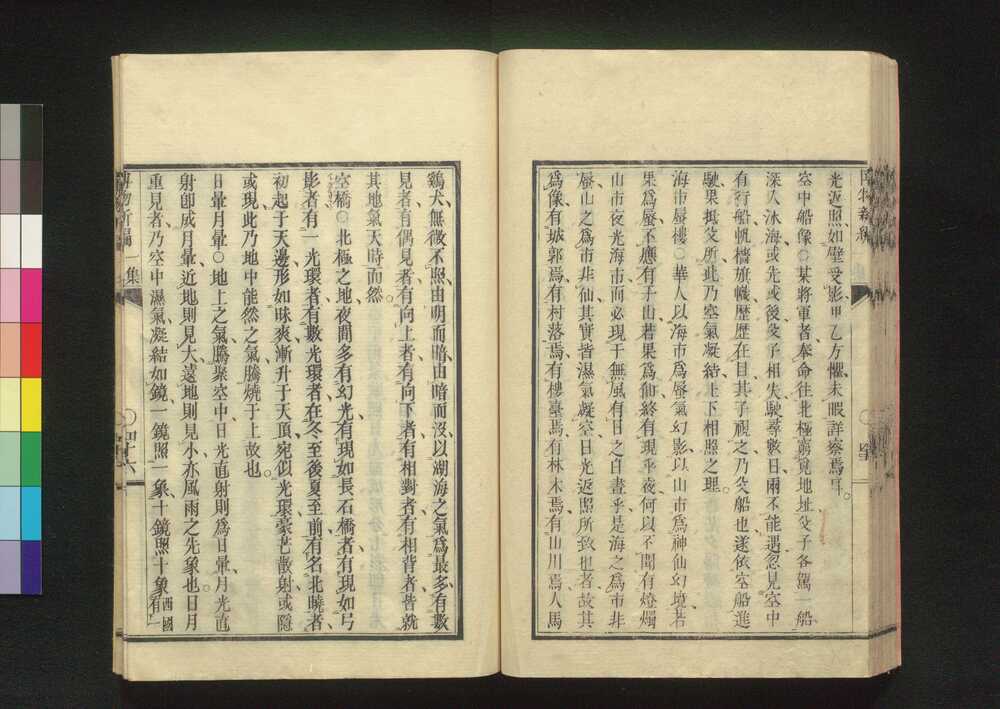 光返照如壁受影里乙方懨未暇詳察焉耳
空中船像○某將軍者奉命往北極窮覓地址父子各駕一船
深入冰海或先或後父子相失駛尋數日兩不能遇忽見空中
有行船帆檣旂幟歷歷在目其子視之乃父船也遂依空船進
駛果抵父所此乃空氣凝結上下相照之理
海市蜃樓○華人以海市爲蜃氣幻影以山市爲神仙幻境若
果爲蜃不應有于山若果爲仙終有現乎夜何以不聞有燈燭
山市夜光海市而必現于無風有日之白晝乎是海之爲市非
蜃山之爲市非仙其實皆濕氣凝空日光返照所致也者故其
爲像有城郭焉有村落焉有樓臺焉有林木焉有山川焉人馬
鷄犬無微不照由明而暗由暗而沒以湖海之氣爲最多有數
見者有偶見者有向上者有向下者有相對者有相背者皆就
其地氣天時而然
空橋○北極之地夜間多有幻光有現如長石橋者有現如弓
影者有一光環者有數光環者在冬至後夏至前有名北曉者
初起于天邊形如昧爽漸升于天頂宛似光環豪芒散射或隱
或現此乃地中能然之氣騰燒于上故也
日暈月暈○地上之氣騰聚空中日光直射則爲日暈月光直
射卽成月暈近地則見大遠地則見小亦風雨之先象也日月
重見者乃空中濕氣凝結如鏡一鏡照一象十鏡照十象西國有一
博物新編一集
四十六